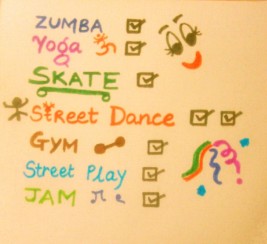 ZUMBA
Yoga
SKATE
Street Dance
GYM
Street Play
JAM